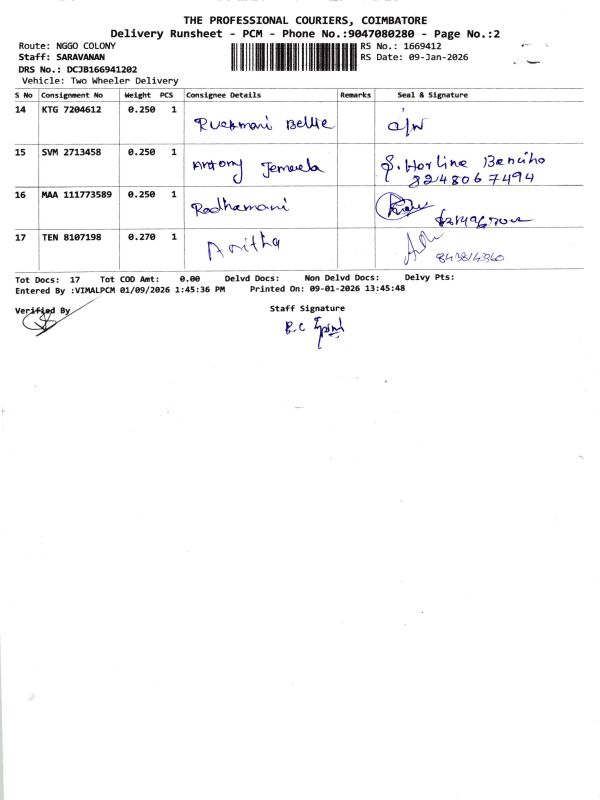 THE PROFESSIONAL COURIERS, COIMBATORE
Delivery Runsheet - PCM - Phone No.:9047080280 - Page No.:2
Route: NGGO COLONY
RS No.: 1669412
Staff: SARAVANAN
RS Date: 09-Jan-2026
DRS No.: DCJB166941202
Vehicle: Two Wheeler Delivery
S No Consignment No Weight PCS Consignee Details Remarks Seal & Signature
14 KTG 7204612 0.250 1 Rukmani Bellie
15 SVM 2713458 0.250 1 Antony Jemeela
8248067494
16 MAA 111773589 0.250 1 Radhamani
17 TEN 8107198 0.270 1 Anitha
Tot Docs: 17 Tot COD Amt: 0.00 Delvd Docs: Non Delvd Docs: Delvy Pts:
Entered By :VIMALPCM 01/09/2026 1:45:36 PM Printed On: 09-01-2026 13:45:48
Verified By Staff Signature